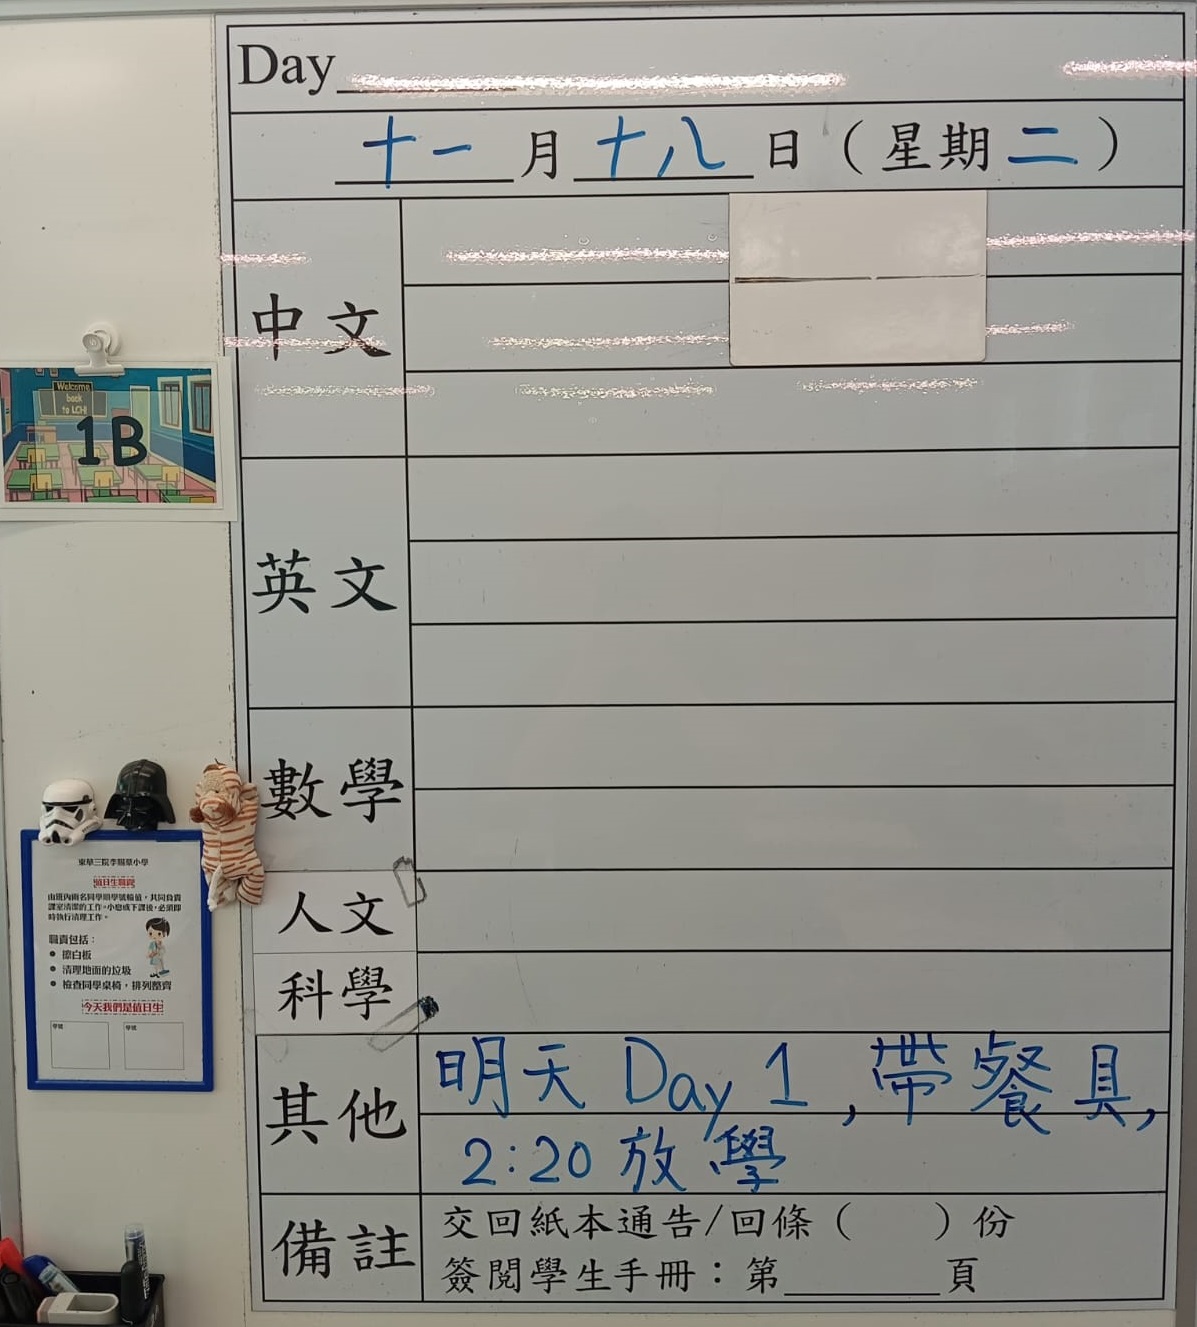 Day
十一月十八日（星期二）
中文
英文
數學
人文
科學
其他
明天 Day 1，帶餐具，
2:20 放學
備註
交回紙本通告/回條（　　）份
簽閱學生手冊：第＿＿＿頁
Welcome
back
to LCH!
1B
東華三院李賜豪小學
值日生職責
由班內兩名同學順學號輪值，共同負責
課室清潔的工作。小息或下課後，必須即
時執行清理工作。
職責包括：
• 擦白板
• 清理地面的垃圾
• 檢查同學桌椅，排列整齊
今天我們是值日生
學號
學號